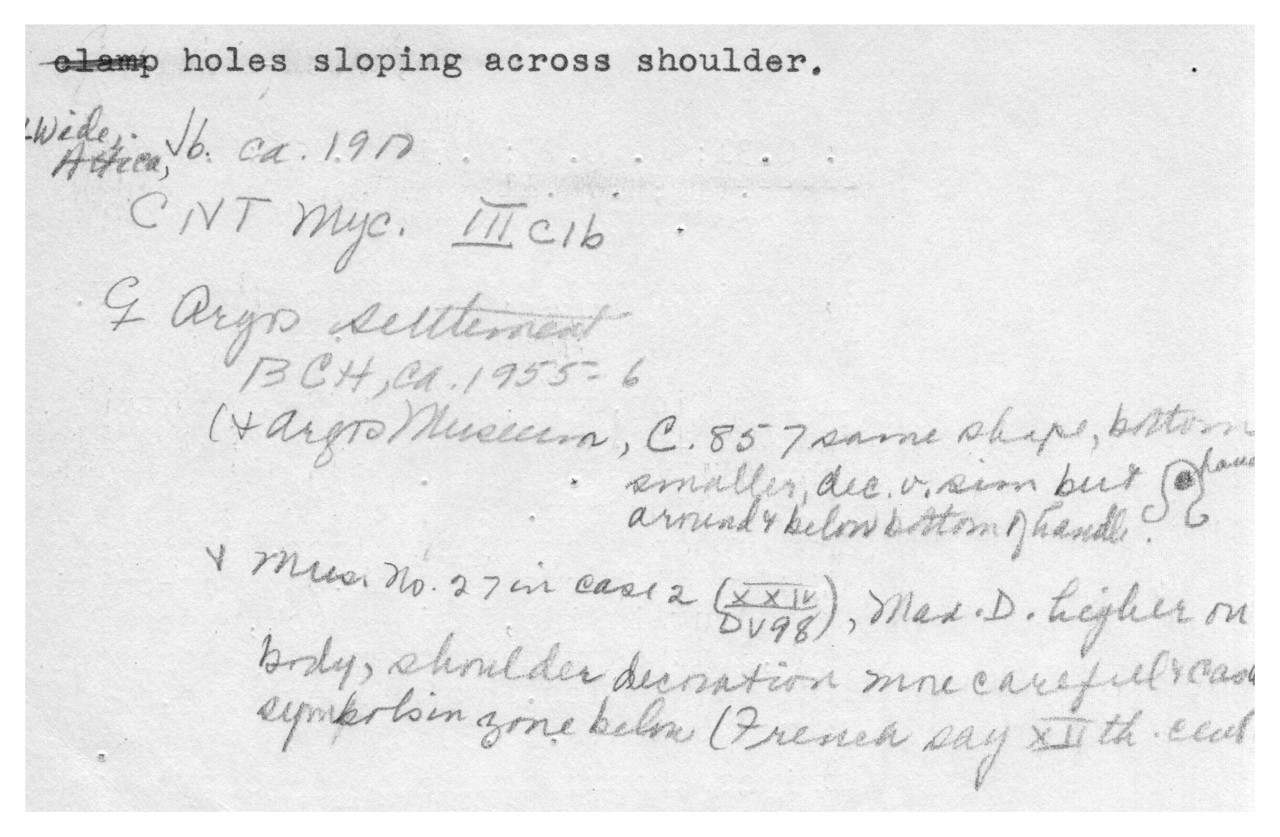 clamp holes sloping across shoulder.
Wide,
Attica, b. ca. 1910
CNT Myc. III C1b
Cf Argos settlement
BCH, ca. 1955-6
(+ Argos Museum, C. 857 same shape, bottom
smaller, dec. v. sim but
around & below bottom of handle.
Mus. No. 27 in case 2 (XXIV DV98), Max. D. higher on
body, shoulder decoration more careful &
symbols in zone below (French say XIIth. cent